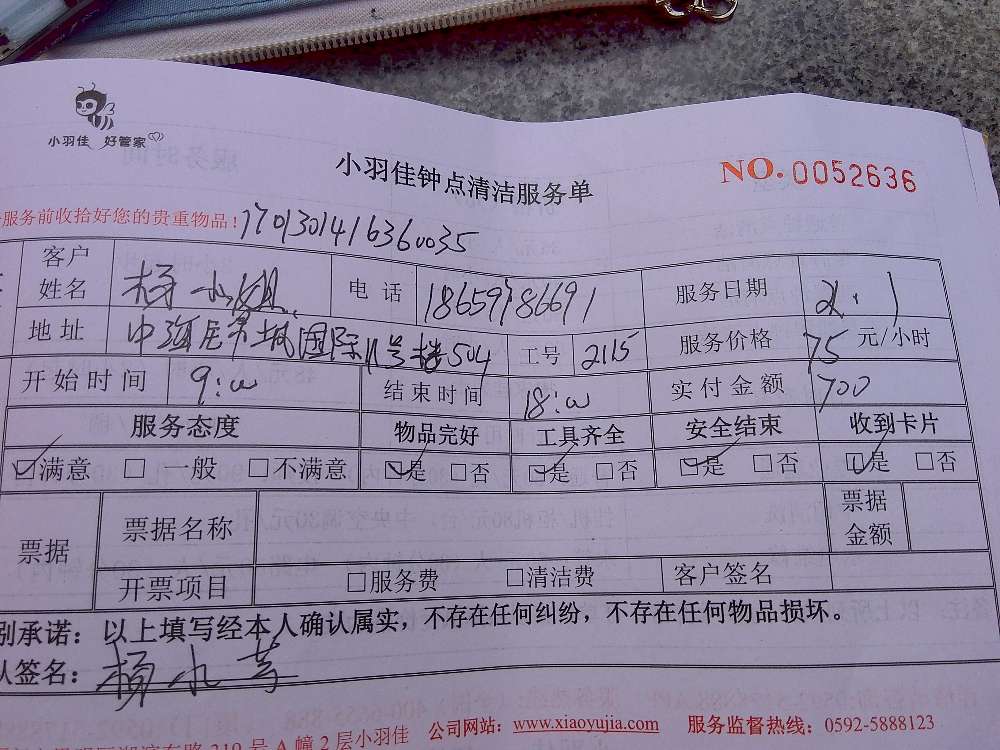 小羽佳 好管家
小羽佳钟点清洁服务单
NO. 0052636
服务前收拾好您的贵重物品! 1701301416360035
客户姓名 杨小姐 电话 18659786691 服务日期 2.1
地址 国际11号楼504 工号 2115 服务价格 75 元/小时
开始时间 9:00 结束时间 18:00 实付金额 700
服务态度 物品完好 工具齐全 安全结束 收到卡片
☑满意 □一般 □不满意 ☑是 □否 ☑是 □否 ☑是 □否 ☑是 □否
票据 票据名称 票据金额
开票项目 □服务费 □清洁费 客户签名
别承诺:以上填写经本人确认属实,不存在任何纠纷,不存在任何物品损坏。
签名: 杨
310号A幢2层小羽佳 公司网站:www.xiaoyujia.com 服务监督热线:0592-5888123